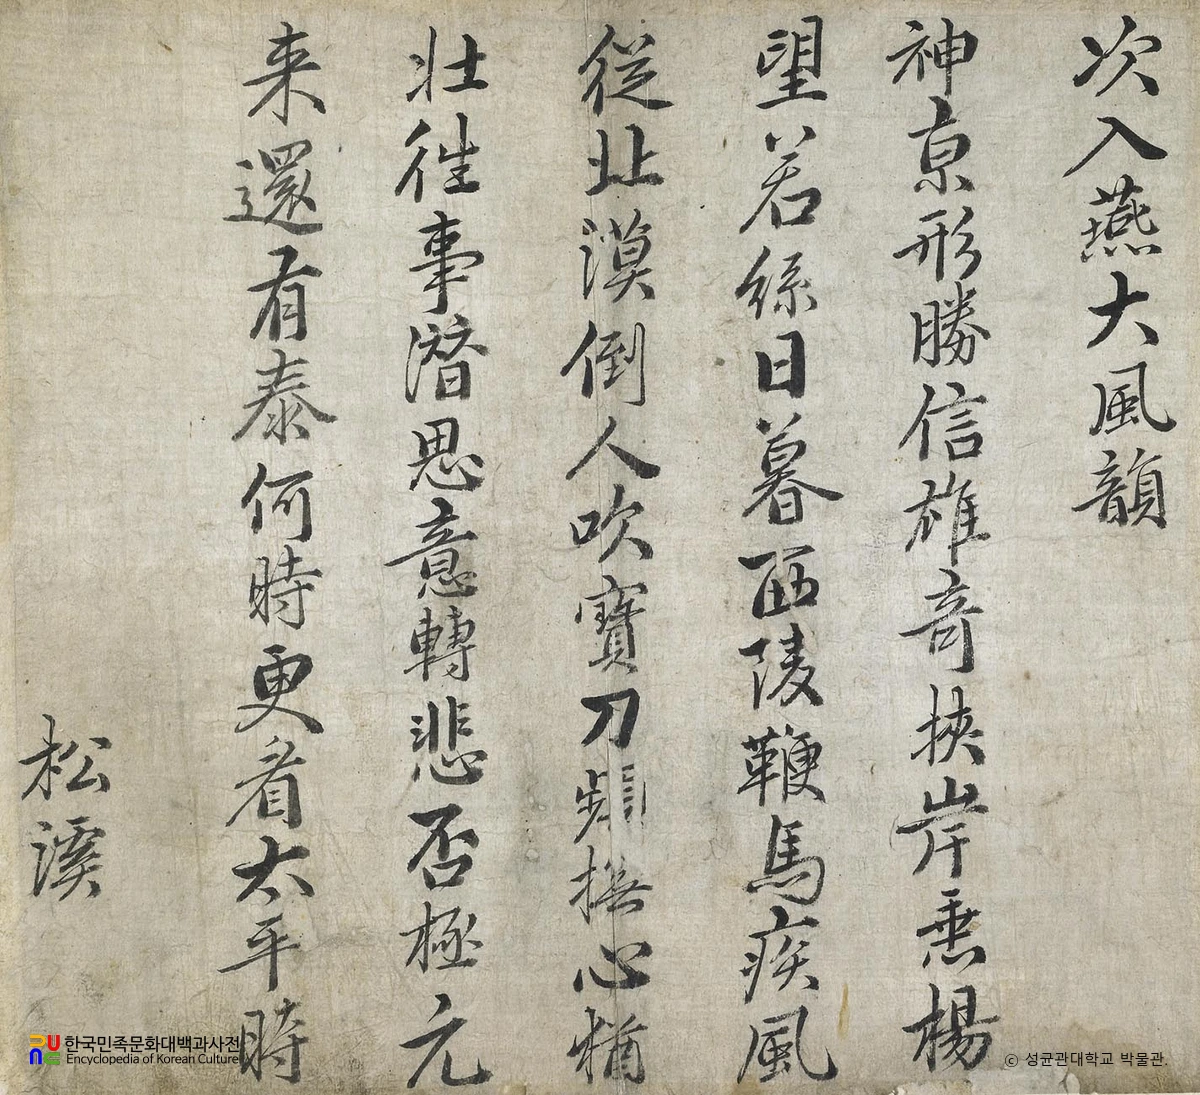 次入燕大風韻
神京形勝信雄奇挾岸垂楊
望若絲日暮西陵鞭馬疾風
從北漠倒人吹寶刀頻撫心猶
壯往事潛思意轉悲否極元
来還有泰何時更看太平時
松溪
한국민족문화대백과사전
Encyclopedia of Korean Culture
ⓒ 성균관대학교 박물관.